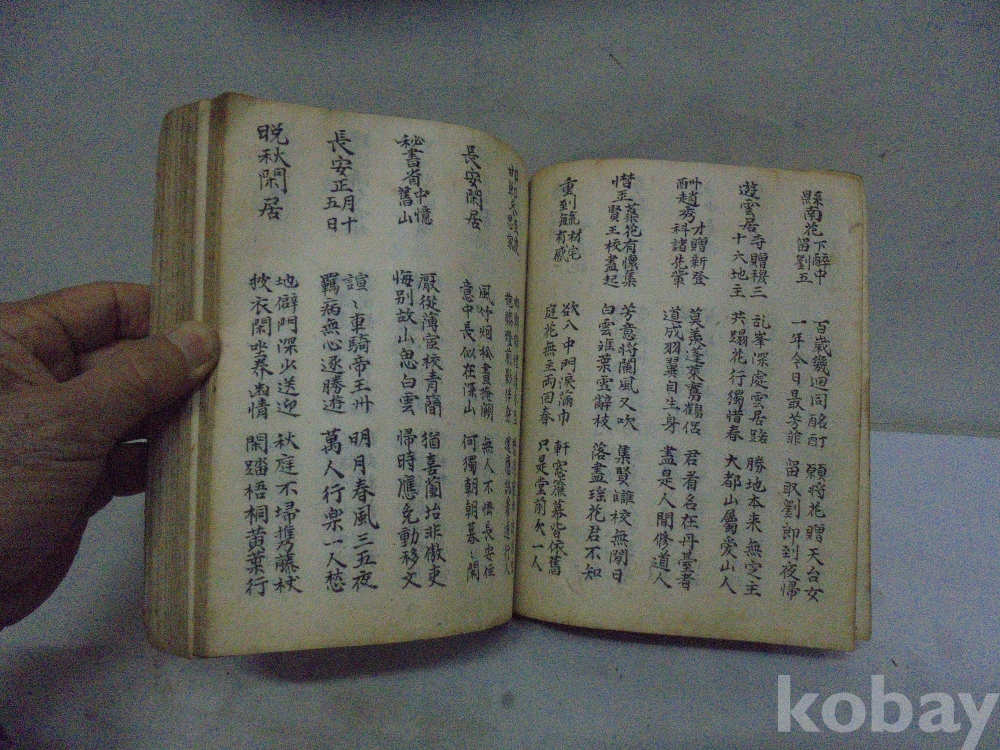 縣南花下醉中
留劉五
百歲幾迴同酩酊 願將花贈天台女
一年今日最芳菲 留取劉郎到夜帰
遊雲居寺贈穆三
十六地主
乱峯深處雲居路 勝地本来無定主
共蹋花行獨惜春 大都山屬愛山人
酬趙秀才贈新登
科諸先輩
莫羨蓬萊鸞鶴侶 君看名在丹臺者
道成羽翼自生身 盡是人間修道人
惜玉蘂花有懷集
賢王校書起
芳意將闌風又吹 集賢讎校無閑日
白雲離葉雪辭枝 落盡瑤花君不知
重到毓材宅
有感
欲入中門淚滿巾 軒窓簾幕皆依舊
庭花無主兩回春 只是堂前欠一人
長安閑居
風竹烟松晝掩關 無人不怪長安住
意中長似在深山 何獨朝朝暮〻閑
秘書省中憶
舊山
厭從薄宦校青簡 猶喜蘭台非傲吏
悔別故山思白雲 帰時應免動移文
長安正月十
五日
諠〻車騎帝王州 明月春風三五夜
羈病無心逐勝遊 萬人行樂一人愁
晚秋閑居
地僻門深少送迎 秋庭不掃携藤杖
披衣閑坐養幽情 閑蹋梧桐黃葉行
kobay